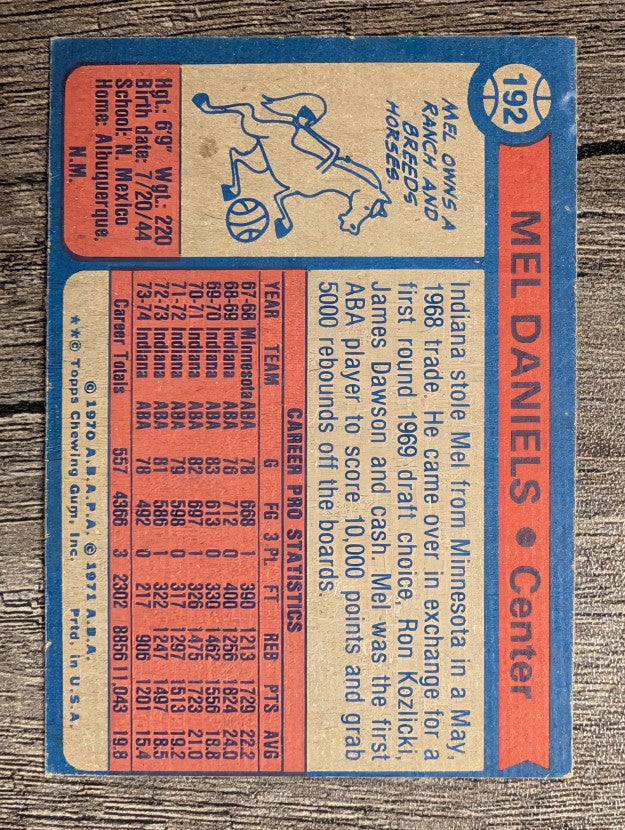 192
MEL DANIELS • Center
MEL OWNS A
RANCH AND
BREEDS
HORSES
Hgt.: 6'9" Wgt.: 220
Birth date: 7/20/44
School: N. Mexico
Home: Albuquerque,
N.M.
Indiana stole Mel from Minnesota in a May,
1968 trade. He came over in exchange for a
first round 1969 draft choice, Ron Kozlicki,
James Dawson and cash. Mel was the first
ABA player to score 10,000 points and grab
5000 rebounds off the boards.
CAREER PRO STATISTICS
YEAR TEAM G FG 3 Pt. FT REB PTS AVG
67-68 Minnesota ABA 78 668 1 390 1213 1728 22.2
68-69 Indiana ABA 76 712 0 400 1256 1824 24.0
69-70 Indiana ABA 83 613 0 330 1462 1556 18.8
70-71 Indiana ABA 82 697 1 326 1475 1723 21.0
71-72 Indiana ABA 79 598 0 317 1297 1513 19.2
72-73 Indiana ABA 81 586 1 322 1247 1497 18.5
73-74 Indiana ABA 78 492 0 217 906 1201 15.4
Career Totals 557 4366 3 2302 8856 11,043 19.8
© 1970 A.B.A.P.A. © 1971 A.B.A.
**© Topps Chewing Gum, Inc. Prtd. in U.S.A.